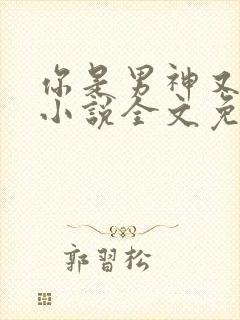 你是男神又
小說全文免
郭習松